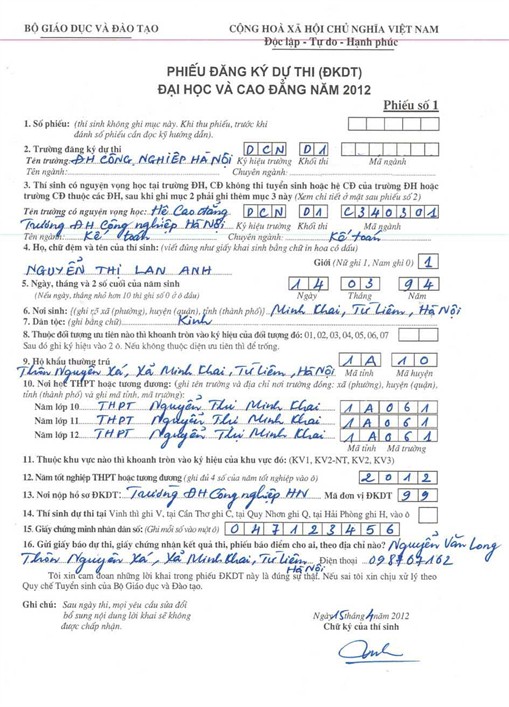 BỘ GIÁO DỤC VÀ ĐÀO TẠO CỘNG HOÀ XÃ HỘI CHỦ NGHĨA VIỆT NAM
Độc lập - Tự do - Hạnh phúc
PHIẾU ĐĂNG KÝ DỰ THI (ĐKDT)
ĐẠI HỌC VÀ CAO ĐẲNG NĂM 2012
Phiếu số 1
1. Số phiếu: (thí sinh không ghi mục này. Khi thu phiếu, trước khi
đánh số phiếu cần đọc kỹ hướng dẫn).
2. Trường đăng ký dự thi D C N D1
Tên trường: ĐH CÔNG NGHIỆP HÀ NỘI Ký hiệu trường Khối thi Mã ngành
Tên ngành: Chuyên ngành:
3. Thí sinh có nguyện vọng học tại trường ĐH, CĐ không thi tuyển sinh hoặc hệ CĐ của trường ĐH hoặc
trường CĐ thuộc các ĐH, sau khi ghi mục 2 phải ghi thêm mục 3 này (Xem chi tiết ở mặt sau phiếu số 2)
Tên trường có nguyện vọng học: Hệ Cao đẳng D C N D1 C 3 4 0 3 0 1
Trường ĐH Công nghiệp Hà Nội Ký hiệu trường Khối thi Mã ngành
Tên ngành Kế toán Chuyên ngành: Kế toán
4. Họ, chữ đệm và tên của thí sinh: (viết đúng như giấy khai sinh bằng chữ in hoa có dấu)
NGUYỄN THỊ LAN ANH Giới (Nữ ghi 1, Nam ghi 0) 1
5. Ngày, tháng và 2 số cuối của năm sinh 1 4 0 3 9 4
(Nếu ngày, tháng nhỏ hơn 10 thì ghi số 0 ở ô đầu) Ngày Tháng Năm
6. Nơi sinh: (ghi rõ xã (phường), huyện (quận), tỉnh (thành phố)) Minh Khai, Từ Liêm, Hà Nội
7. Dân tộc: (ghi bằng chữ) Kinh
8. Thuộc đối tượng ưu tiên nào thì khoanh tròn vào ký hiệu của đối tượng đó: 01, 02, 03, 04, 05, 06, 07
Sau đó ghi ký hiệu vào 2 ô. Nếu không thuộc diện ưu tiên thì để trống.
9. Hộ khẩu thường trú 1 A 1 0
Thôn Nguyên Xá, Xã Minh Khai, Từ Liêm, Hà Nội Mã tỉnh Mã huyện
10. Nơi học THPT hoặc tương đương: (ghi tên trường và địa chỉ nơi trường đóng: xã (phường), huyện (quận),
tỉnh (thành phố) và ghi mã tỉnh, mã trường):
Năm lớp 10 THPT Nguyễn Thị Minh Khai 1 A 0 6 1
Năm lớp 11 THPT Nguyễn Thị Minh Khai 1 A 0 6 1
Năm lớp 12 THPT Nguyễn Thị Minh Khai 1 A 0 6 1
Mã tỉnh Mã trường
11. Thuộc khu vực nào thì khoanh tròn vào ký hiệu của khu vực đó: (KV1, KV2-NT, KV2, KV3)
12. Năm tốt nghiệp THPT hoặc tương đương (ghi đủ 4 số của năm tốt nghiệp vào ô) 2 0 1 2
13. Nơi nộp hồ sơ ĐKDT: Trường ĐH Công nghiệp HN Mã đơn vị ĐKDT 9 9
14. Thí sinh dự thi tại Vinh thì ghi V, tại Cần Thơ ghi C, tại Quy Nhơn ghi Q, tại Hải Phòng ghi H, vào ô
15. Giấy chứng minh nhân dân số: (Ghi mỗi số vào một ô) 0 4 7 1 2 3 4 5 6
16. Gửi giấy báo dự thi, giấy chứng nhận kết quả thi, phiếu báo điểm cho ai, theo địa chỉ nào? Nguyễn Văn Long
Thôn Nguyên Xá, Xã Minh Khai, Từ Liêm, Hà Nội Điện thoại 098707162
Tôi xin cam đoan những lời khai trong phiếu ĐKDT này là đúng sự thật. Nếu sai tôi xin chịu xử lý theo
Quy chế Tuyển sinh của Bộ Giáo dục và Đào tạo.
Ghi chú: Sau ngày thi, mọi yêu cầu sửa đổi
bổ sung nội dung lời khai sẽ không
được chấp nhận.
Ngày 15 tháng 4 năm 2012
Chữ ký của thí sinh
Anh